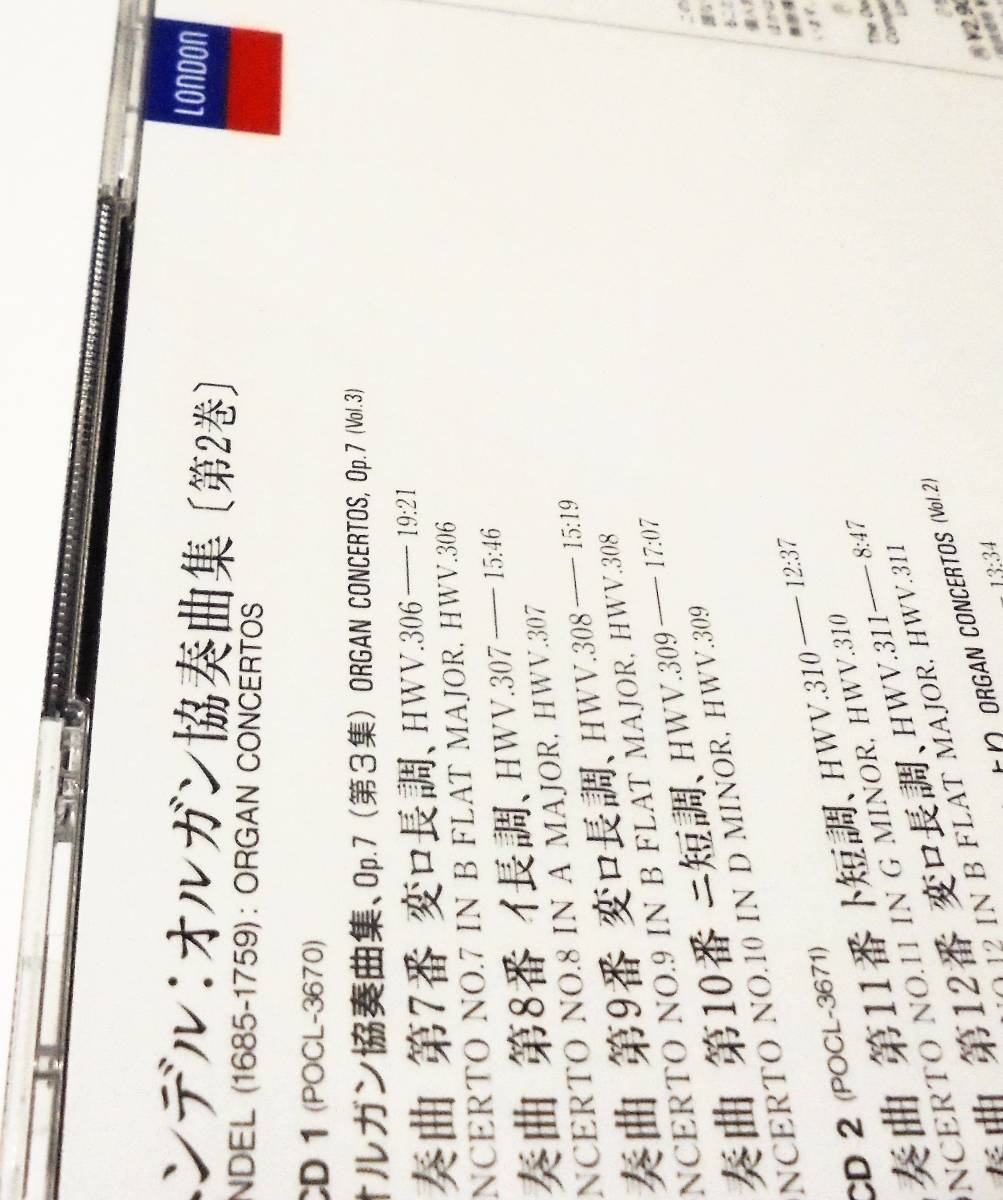 LONDON
ンデル：オルガン協奏曲集〔第2巻〕
NDEL (1685-1759) : ORGAN CONCERTOS
CD 1 (POCL-3670)
オルガン協奏曲集、Op.7（第3集）ORGAN CONCERTOS, Op.7 (Vol.3)
奏曲 第7番 変ロ長調、HWV.306—19:21
NCERTO NO.7 IN B FLAT MAJOR, HWV.306
奏曲 第8番 イ長調、HWV.307—15:46
NCERTO NO.8 IN A MAJOR, HWV.307
奏曲 第9番 変ロ長調、HWV.308—15:19
NCERTO NO.9 IN B FLAT MAJOR, HWV.308
奏曲 第10番 ニ短調、HWV.309—17:07
NCERTO NO.10 IN D MINOR, HWV.309
CD 2 (POCL-3671)
奏曲 第11番 ト短調、HWV.310—12:37
NCERTO NO.11 IN G MINOR, HWV.310
奏曲 第12番 変ロ長調、HWV.311—8:47
NO.12 IN B FLAT MAJOR, HWV.311
より ORGAN CONCERTOS (Vol.2)
13:34